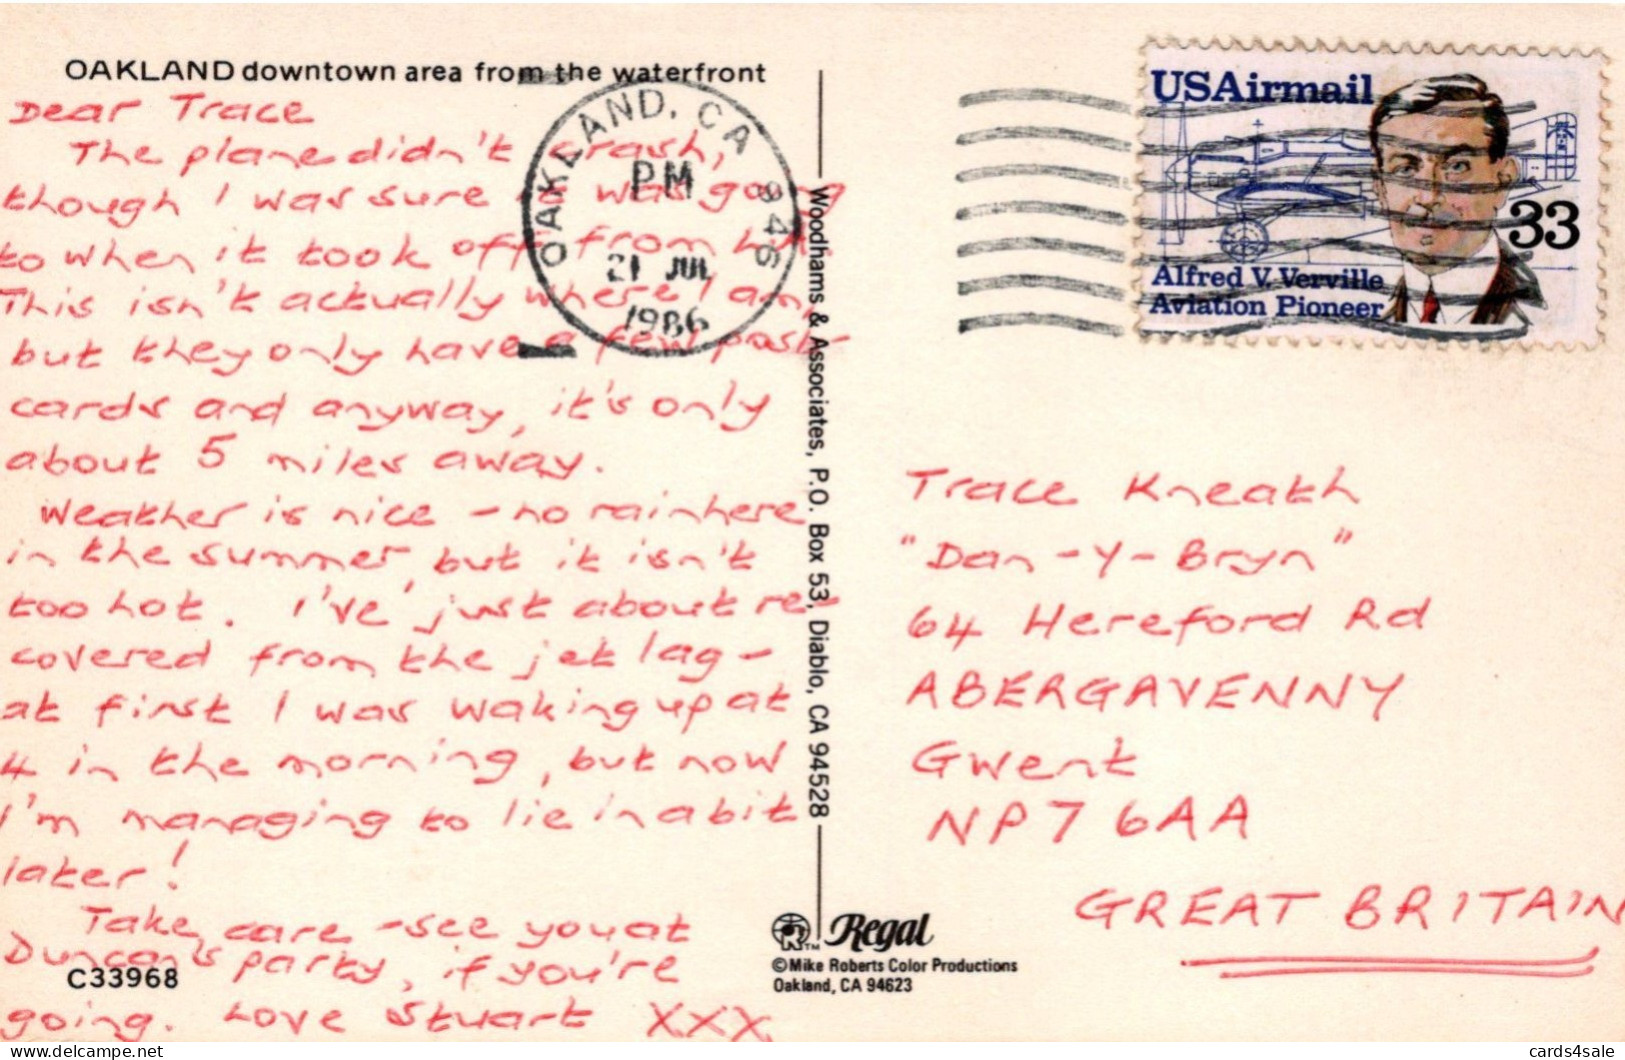 OAKLAND downtown area from the waterfront
Dear Trace
The plane didn't crash,
though I was sure it was going
to when it took off from LHA
This isn't actually where I am,
but they only have a few post-
cards and anyway, it's only
about 5 miles away.
Weather is nice - no rain here
in the summer, but it isn't
too hot. I've just about re-
covered from the jet lag -
at first I was waking up at
4 in the morning, but now
I'm managing to lie in a bit
later!
Take care - see you at
Duncan's party, if you're
going. Love Stuart XXX
C33968
OAKLAND, CA 946
PM
21 JUL
1986
Woodhams & Associates, P.O. Box 53, Diablo, CA 94528
Regal
TM
©Mike Roberts Color Productions
Oakland, CA 94623
USAirmail
33
Alfred V. Verville
Aviation Pioneer
Trace Kneath
"Dan-Y-Bryn"
64 Hereford Rd
ABERGAVENNY
Gwent
NP7 6AA
GREAT BRITAIN
cards4sale